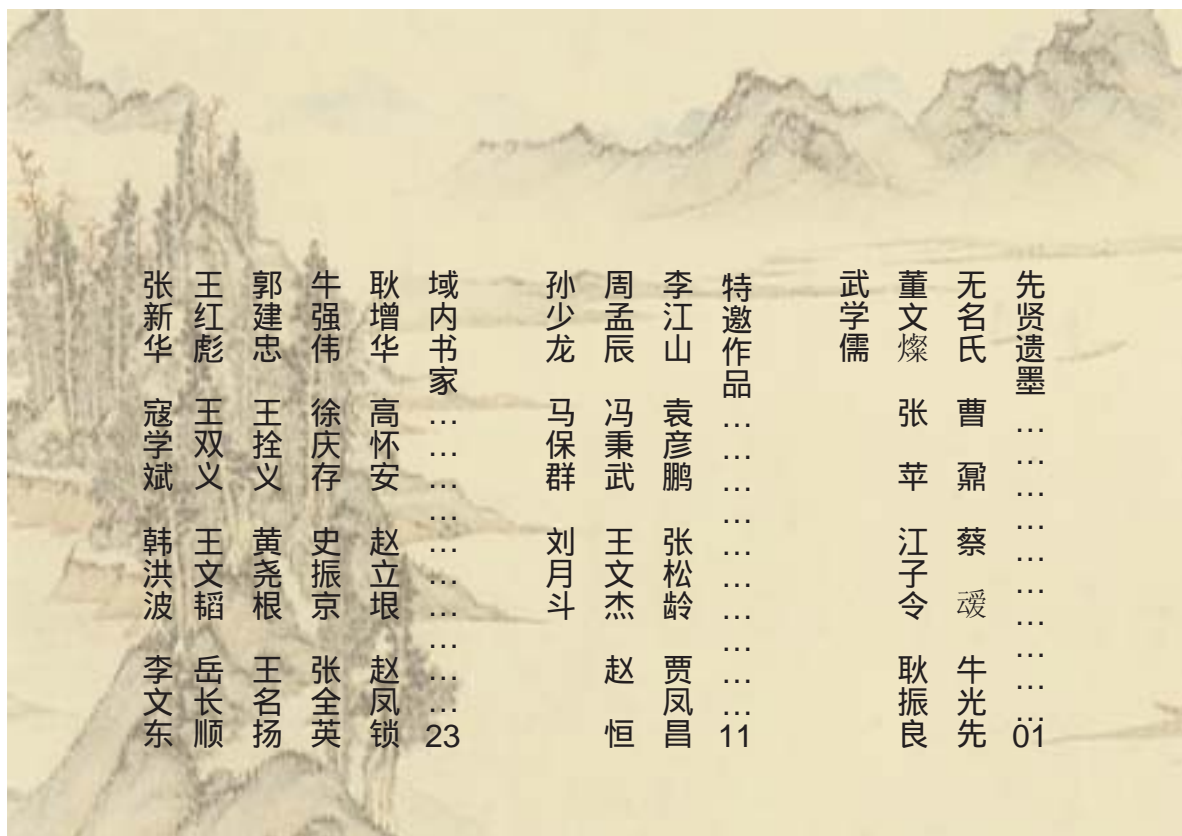 先贤遗墨…………………………01
无名氏 曹鼐 蔡叆 牛光先
董文燦 张苹 江子令 耿振良
武学儒
特邀作品…………………………11
李江山 袁彦鹏 张松龄 贾凤昌
周孟辰 冯秉武 王文杰 赵恒
孙少龙 马保群 刘月斗
域内书家…………………………23
耿增华 高怀安 赵立垠 赵凤锁
牛强伟 徐庆存 史振京 张全英
郭建忠 王拴义 黄尧根 王名扬
王红彪 王双义 王文韬 岳长顺
张新华 寇学斌 韩洪波 李文东